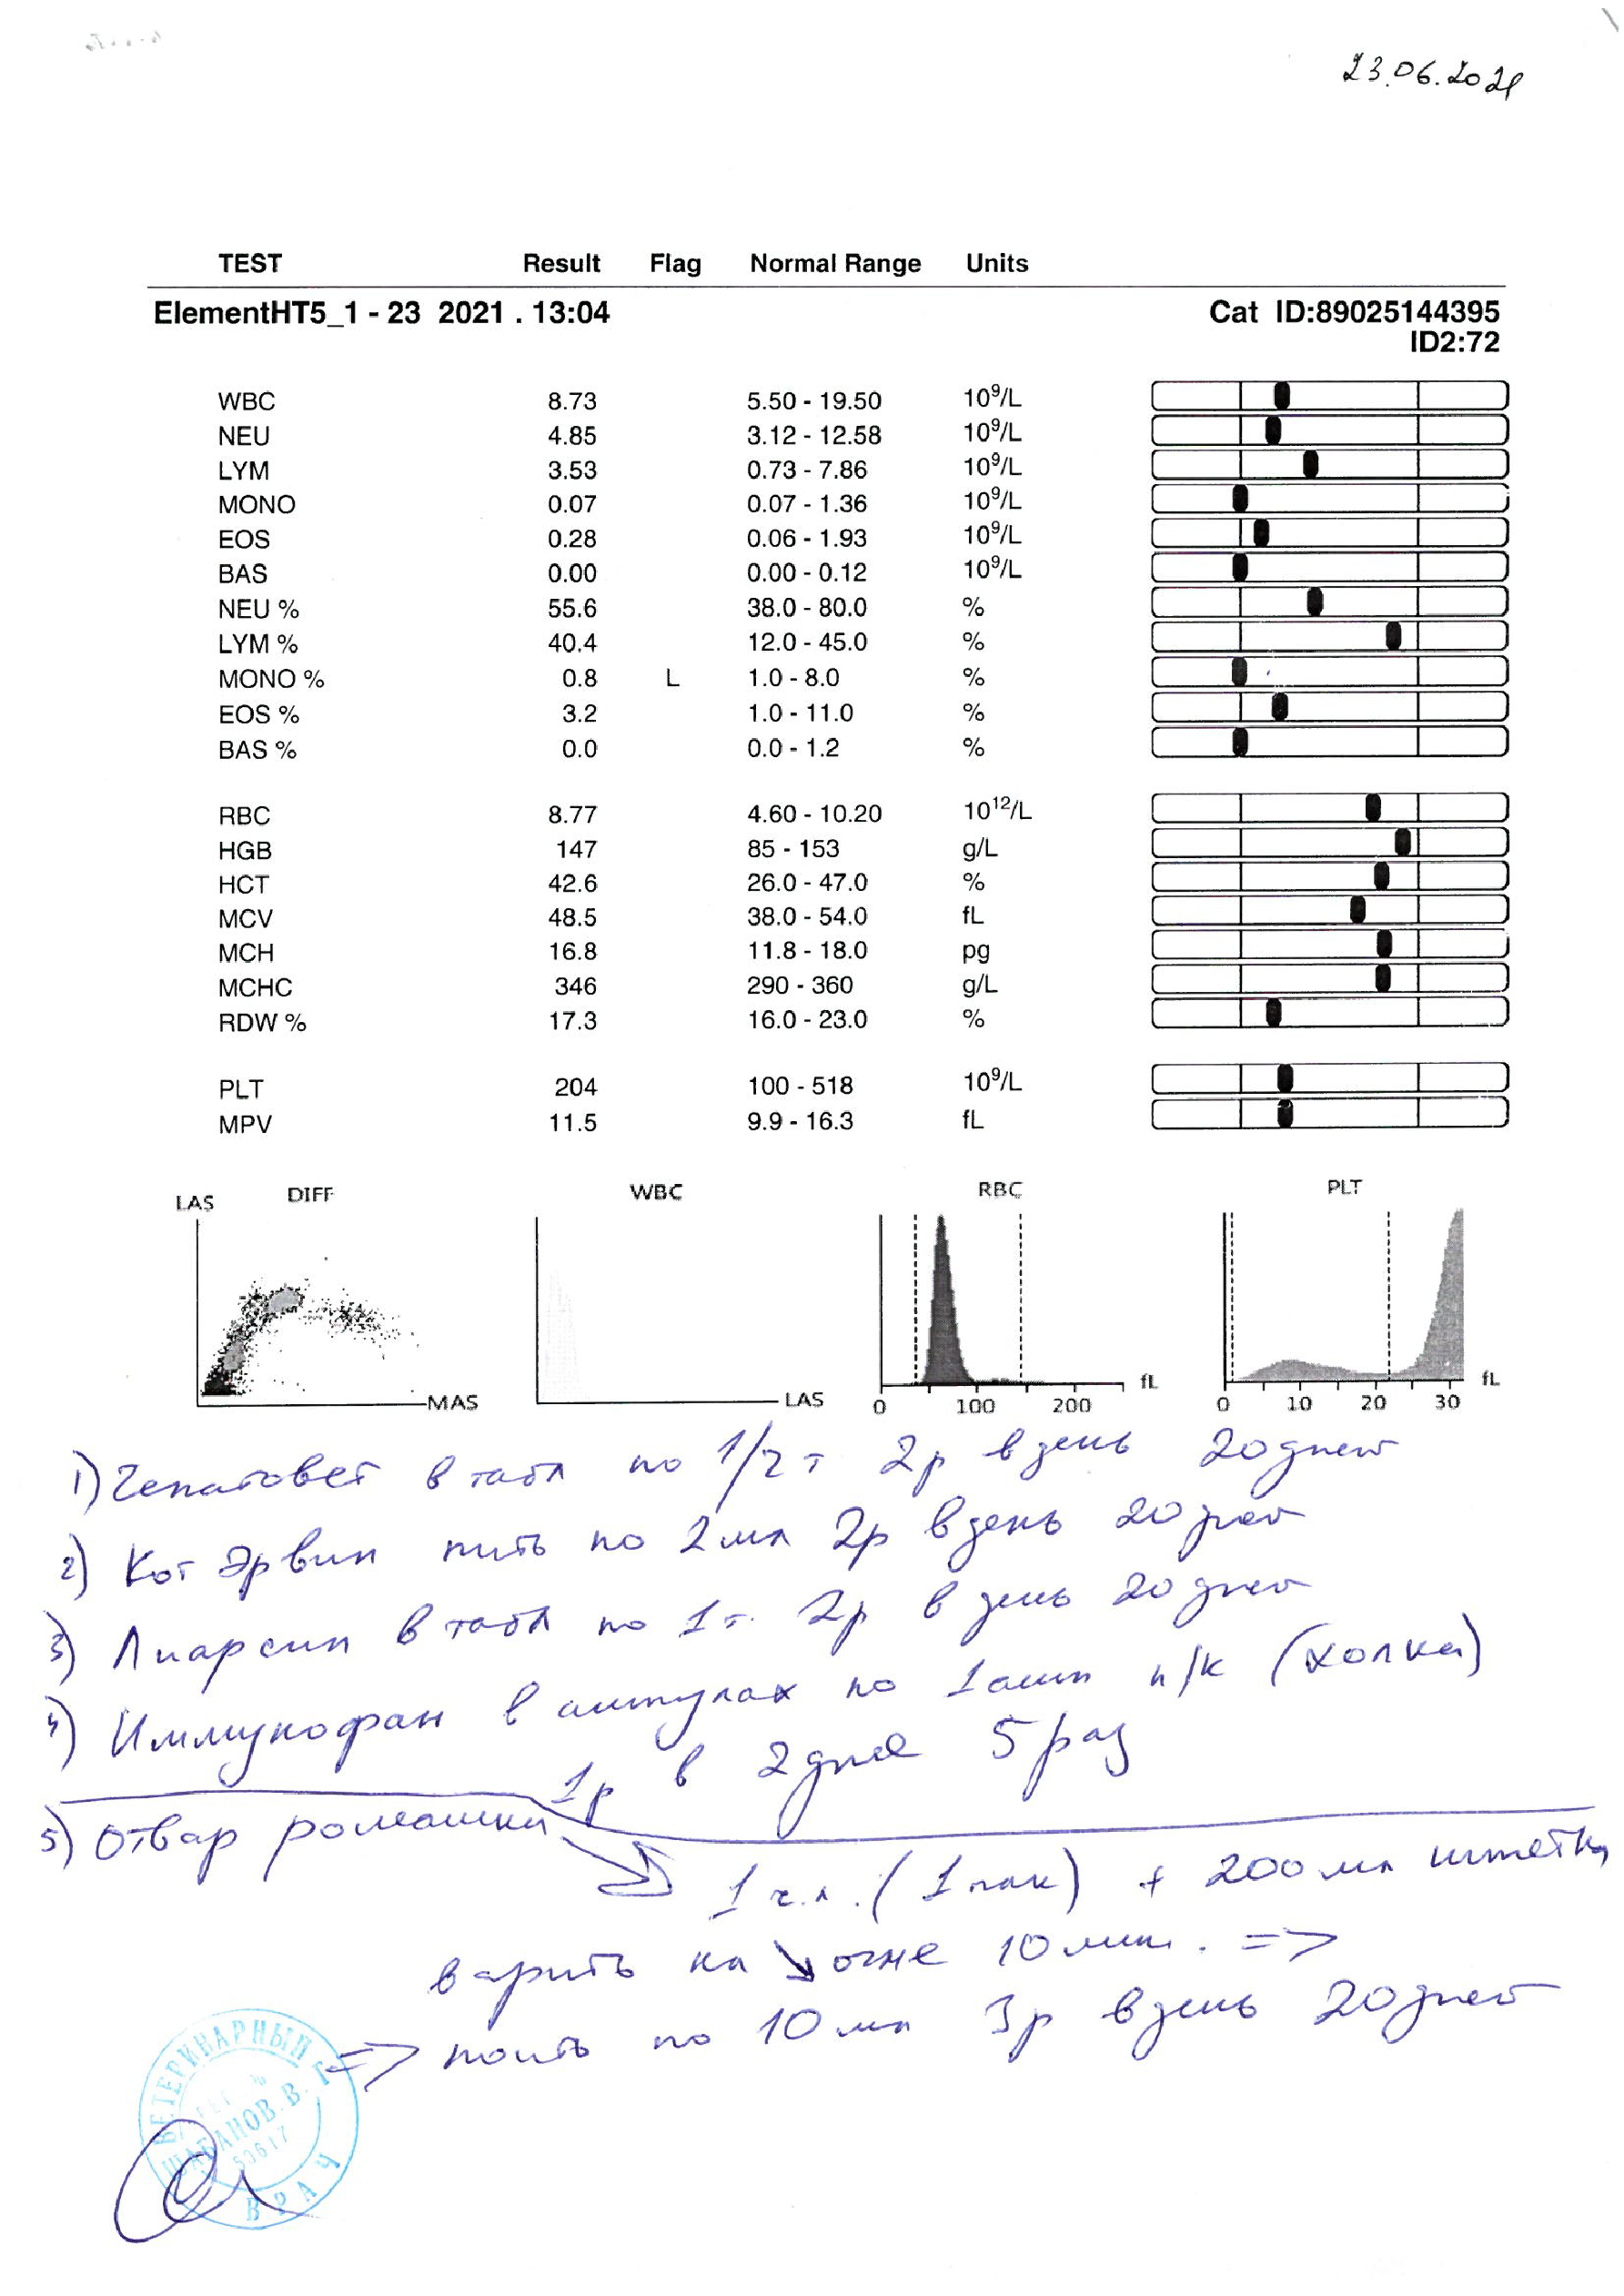 23.06.2021
TEST Result Flag Normal Range Units
ElementHT5_1 - 23 2021 . 13:04 Cat ID:89025144395
ID2:72
WBC 8.73 5.50 - 19.50 10⁹/L
NEU 4.85 3.12 - 12.58 10⁹/L
LYM 3.53 0.73 - 7.86 10⁹/L
MONO 0.07 0.07 - 1.36 10⁹/L
EOS 0.28 0.06 - 1.93 10⁹/L
BAS 0.00 0.00 - 0.12 10⁹/L
NEU % 55.6 38.0 - 80.0 %
LYM % 40.4 12.0 - 45.0 %
MONO % 0.8 L 1.0 - 8.0 %
EOS % 3.2 1.0 - 11.0 %
BAS % 0.0 0.0 - 1.2 %
RBC 8.77 4.60 - 10.20 10¹²/L
HGB 147 85 - 153 g/L
HCT 42.6 26.0 - 47.0 %
MCV 48.5 38.0 - 54.0 fL
MCH 16.8 11.8 - 18.0 pg
MCHC 346 290 - 360 g/L
RDW % 17.3 16.0 - 23.0 %
PLT 204 100 - 518 10⁹/L
MPV 11.5 9.9 - 16.3 fL
LAS DIFF WBC RBC PLT
MAS LAS fL fL
0 100 200 0 10 20 30
1) Гепатовет в табл по 1/2 т 2р в день 20 дней
2) Кот Эрвин пить по 2 мл 2р в день 20 дней
3) Лиарсин в табл по 1 т. 2р в день 20 дней
4) Иммунофан в ампулах по 1 амп п/к (холка)
1р в 2 дня 5 раз
5) Отвар ромашки
1 ч.л. (1 пак) + 200 мл
варить на ↘ огне 10 мин. =>
=> поить по 10 мл 3р в день 20 дней
ВЕТЕРИНАРНЫЙ
ШАБАНОВ. В. Г.
50617
ВРАЧ